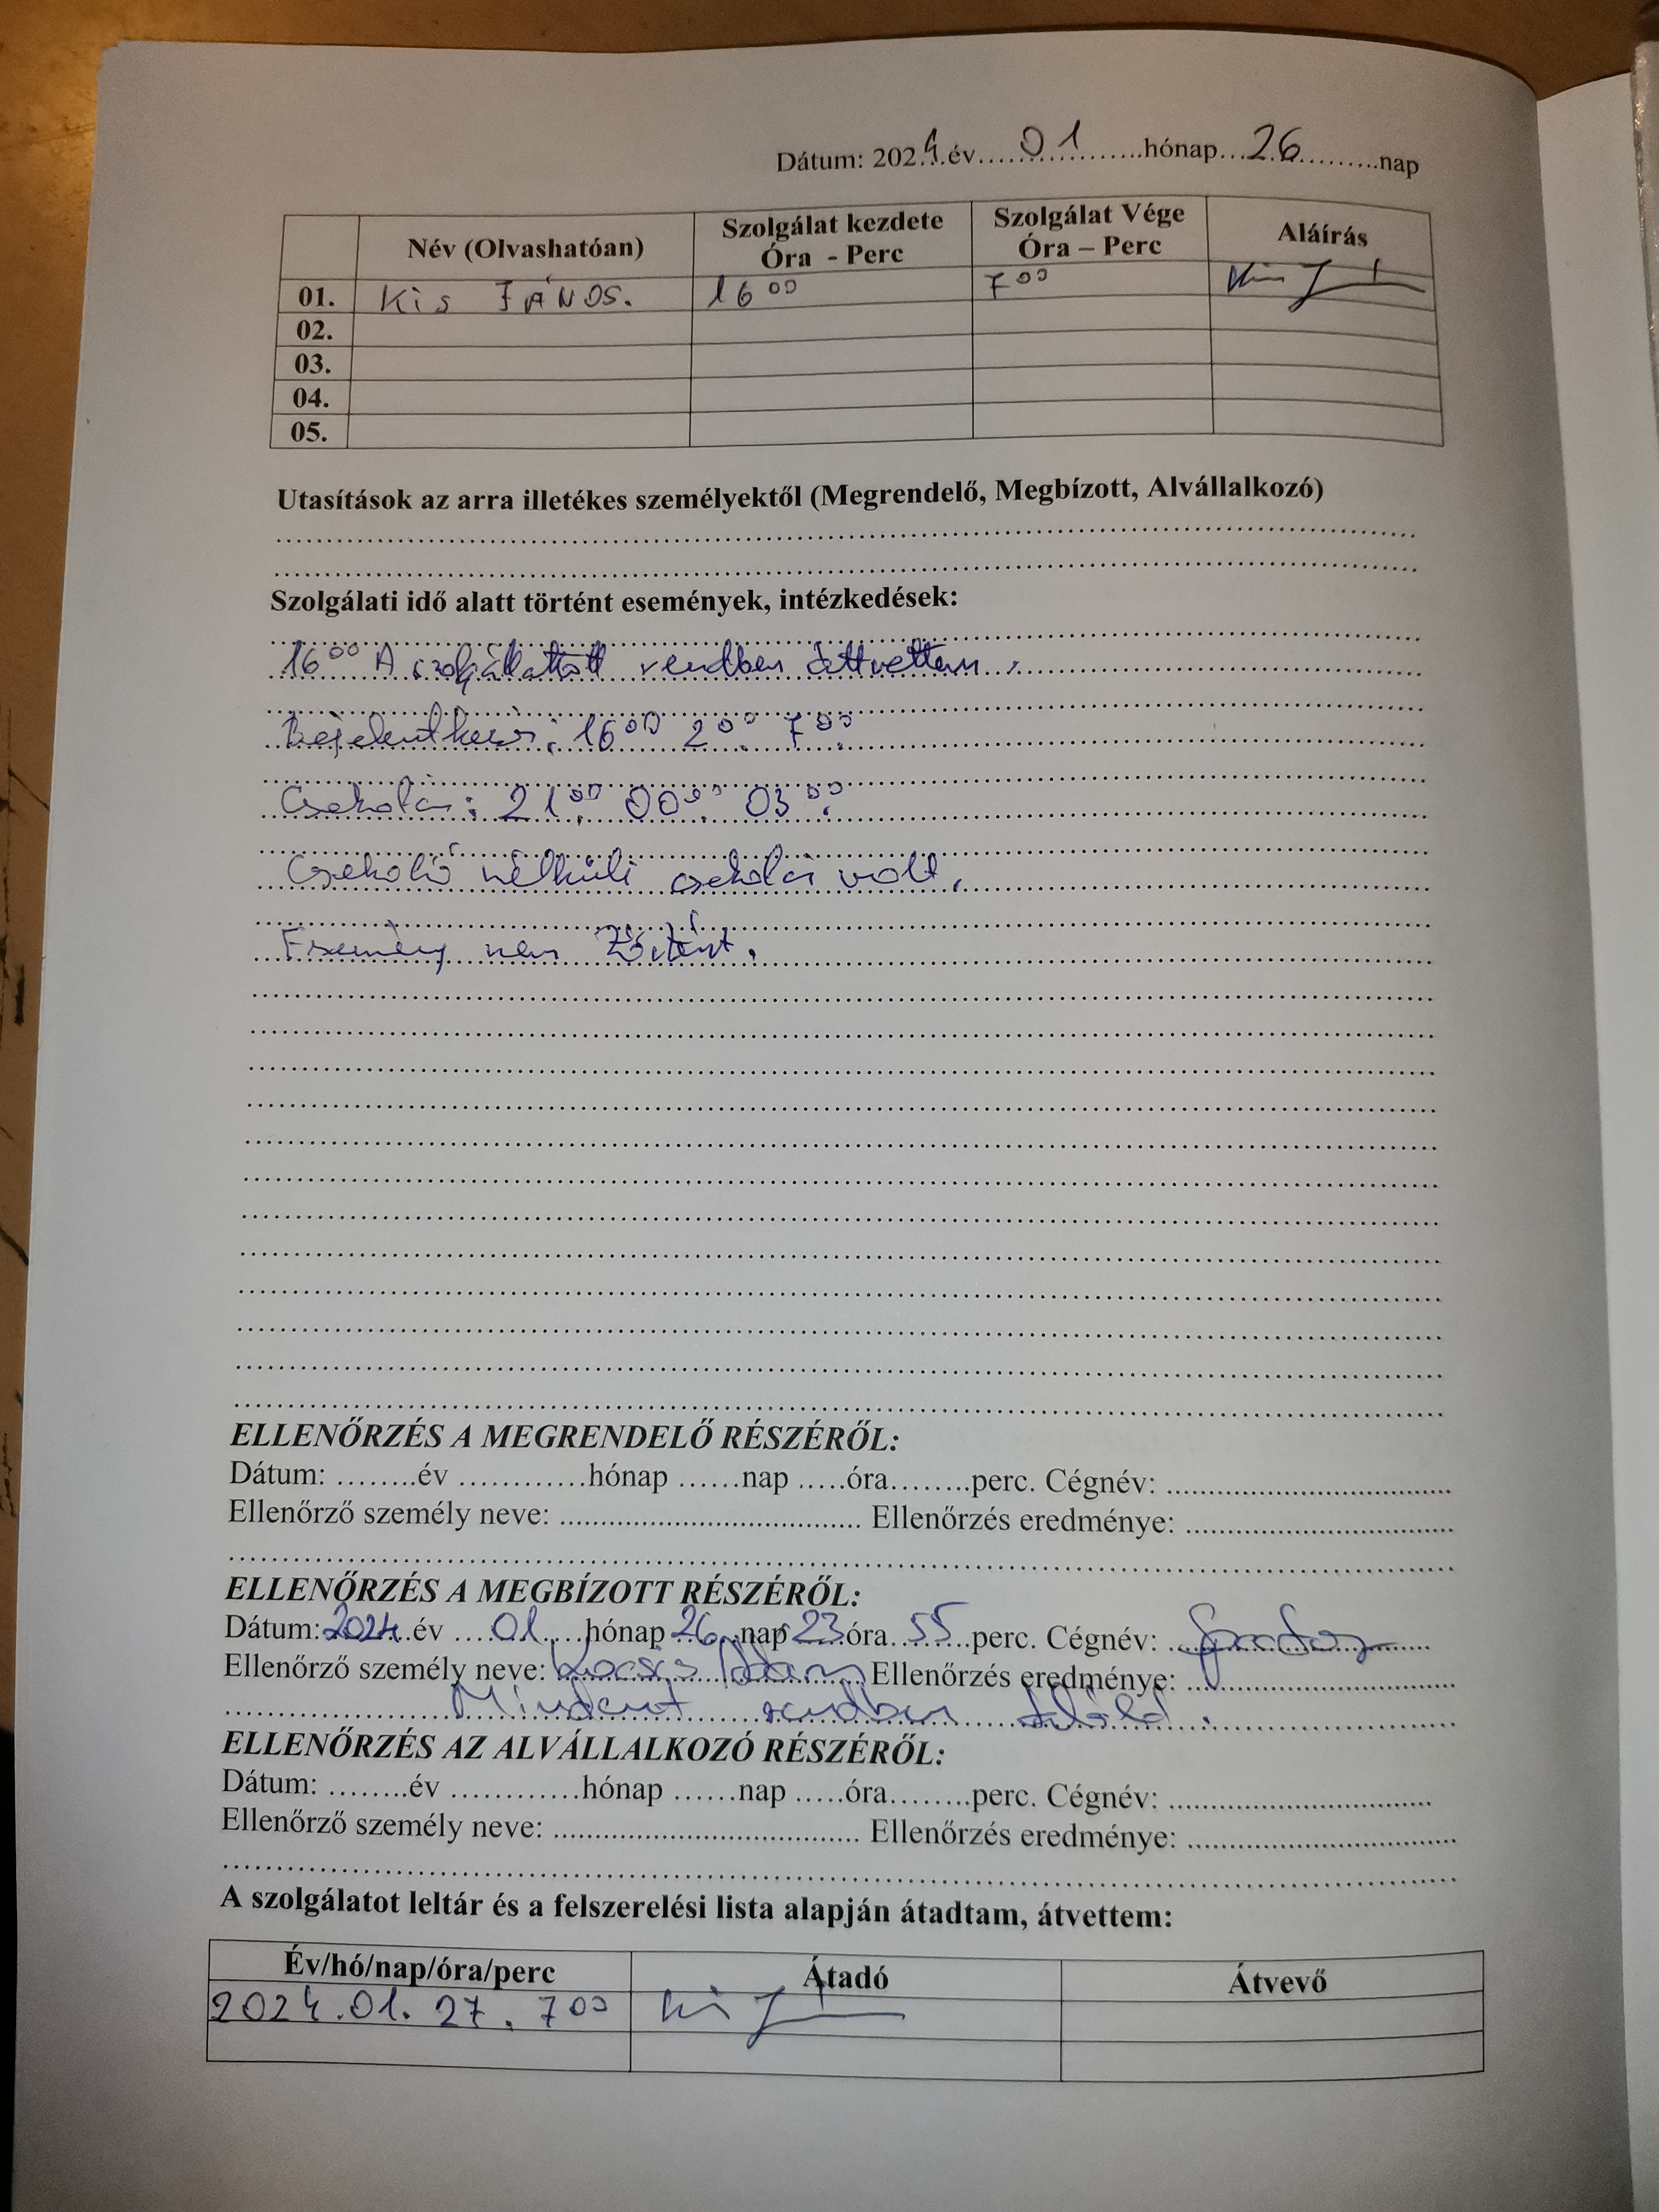 Dátum: 2024.év....01....hónap...26....nap
Név (Olvashatóan) Szolgálat kezdete Óra - Perc Szolgálat Vége Óra – Perc Aláírás
01. Kis JÁNOS. 16 00 7 00 Kis J
02.
03.
04.
05.
Utasítások az arra illetékes személyektől (Megrendelő, Megbízott, Alvállalkozó)
Szolgálati idő alatt történt események, intézkedések:
16 00 A szolgállattott rendben áttvettem.
Bejelentkezés: 16 00 2 00. 7 00.
Csekolás: 21 00. 00 00. 03 00.
Csekoló nélküli csekolás volt.
Esemény nem történt.
ELLENŐRZÉS A MEGRENDELŐ RÉSZÉRŐL:
Dátum: ........év ............hónap ......nap .....óra........perc. Cégnév: ....................
Ellenőrző személy neve: .................... Ellenőrzés eredménye: ....................
ELLENŐRZÉS A MEGBÍZOTT RÉSZÉRŐL:
Dátum: 2024 év ....01....hónap 26 nap 23 óra 55 perc. Cégnév:
Ellenőrző személy neve: Kocsis Ellenőrzés eredménye:
Mindent rendben talált.
ELLENŐRZÉS AZ ALVÁLLALKOZÓ RÉSZÉRŐL:
Dátum: ........év ............hónap ......nap .....óra........perc. Cégnév: ....................
Ellenőrző személy neve: .................... Ellenőrzés eredménye: ....................
A szolgálatot leltár és a felszerelési lista alapján átadtam, átvettem:
Év/hó/nap/óra/perc Átadó Átvevő
2024.01.27. 7 00 Kis J